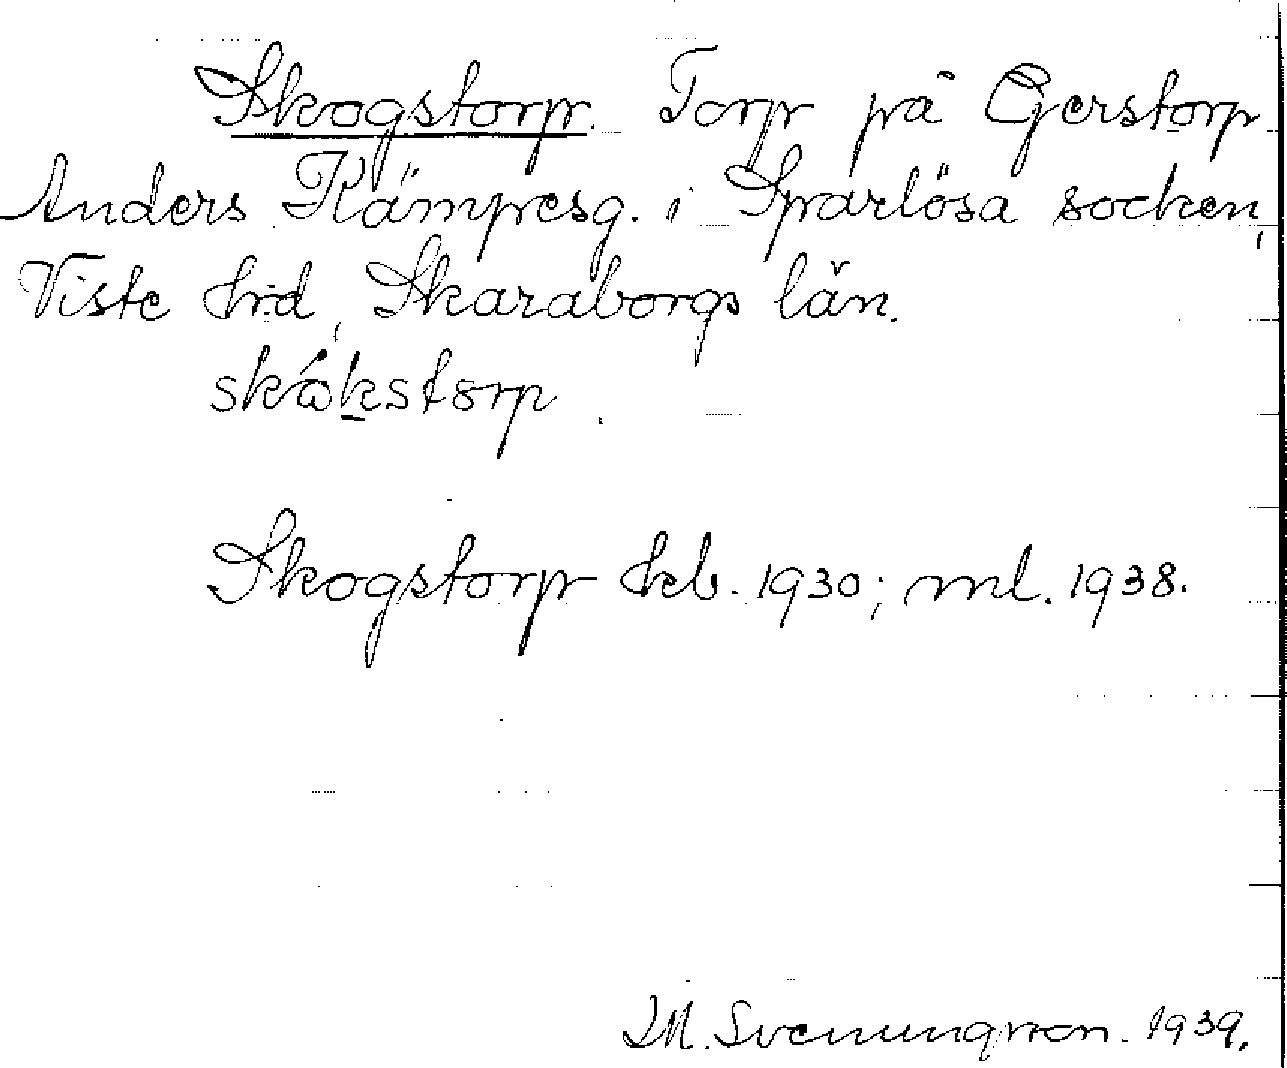 Skogstorp. Torp på Gerstorp
Anders Kämpesg. i Sparlösa socken,
Viste hd, Skaraborgs län.
skåkstorp.
Skogstorp kb. 1930; ml. 1938.
M. Svenungsson. 1939.